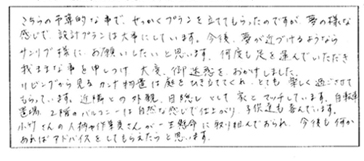 こちらの予算的な事で、せっかくプランを立ててもらったのですが、夢の様な
感じで、設計プランは大事にしています。今後、夢が近づけるようなら
サンリブ様に お願いしたいと思います。何度も足を運んでいただき
我ままな事を申しつけ 大変、御迷惑を おかけしました。
リビングから見る カンナ物置は 庭をひきたててくれ、とても 楽しく過ごさせて
もらっています。近隣との 外観、目隠し として 家と マッチしています。自転車
置場、2階のバルコニーは 自然な感じで仕上がり、子供達も喜んでいます。
小川さんの人柄や作業員さんが 一生懸命に 取り組んでおられ、今後も何か
あればアドバイスを してもらえたらと思います。